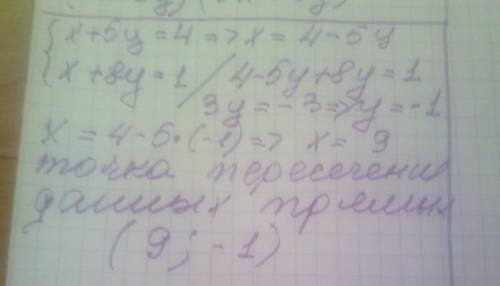 x+5y=4=>x=4-5y
x+8y=1 / 4-5y+8y=1
3y=-3=>y=-1
x=4-5·(-1)=> x=9
точка пересечения
данных прямых
(9;-1)